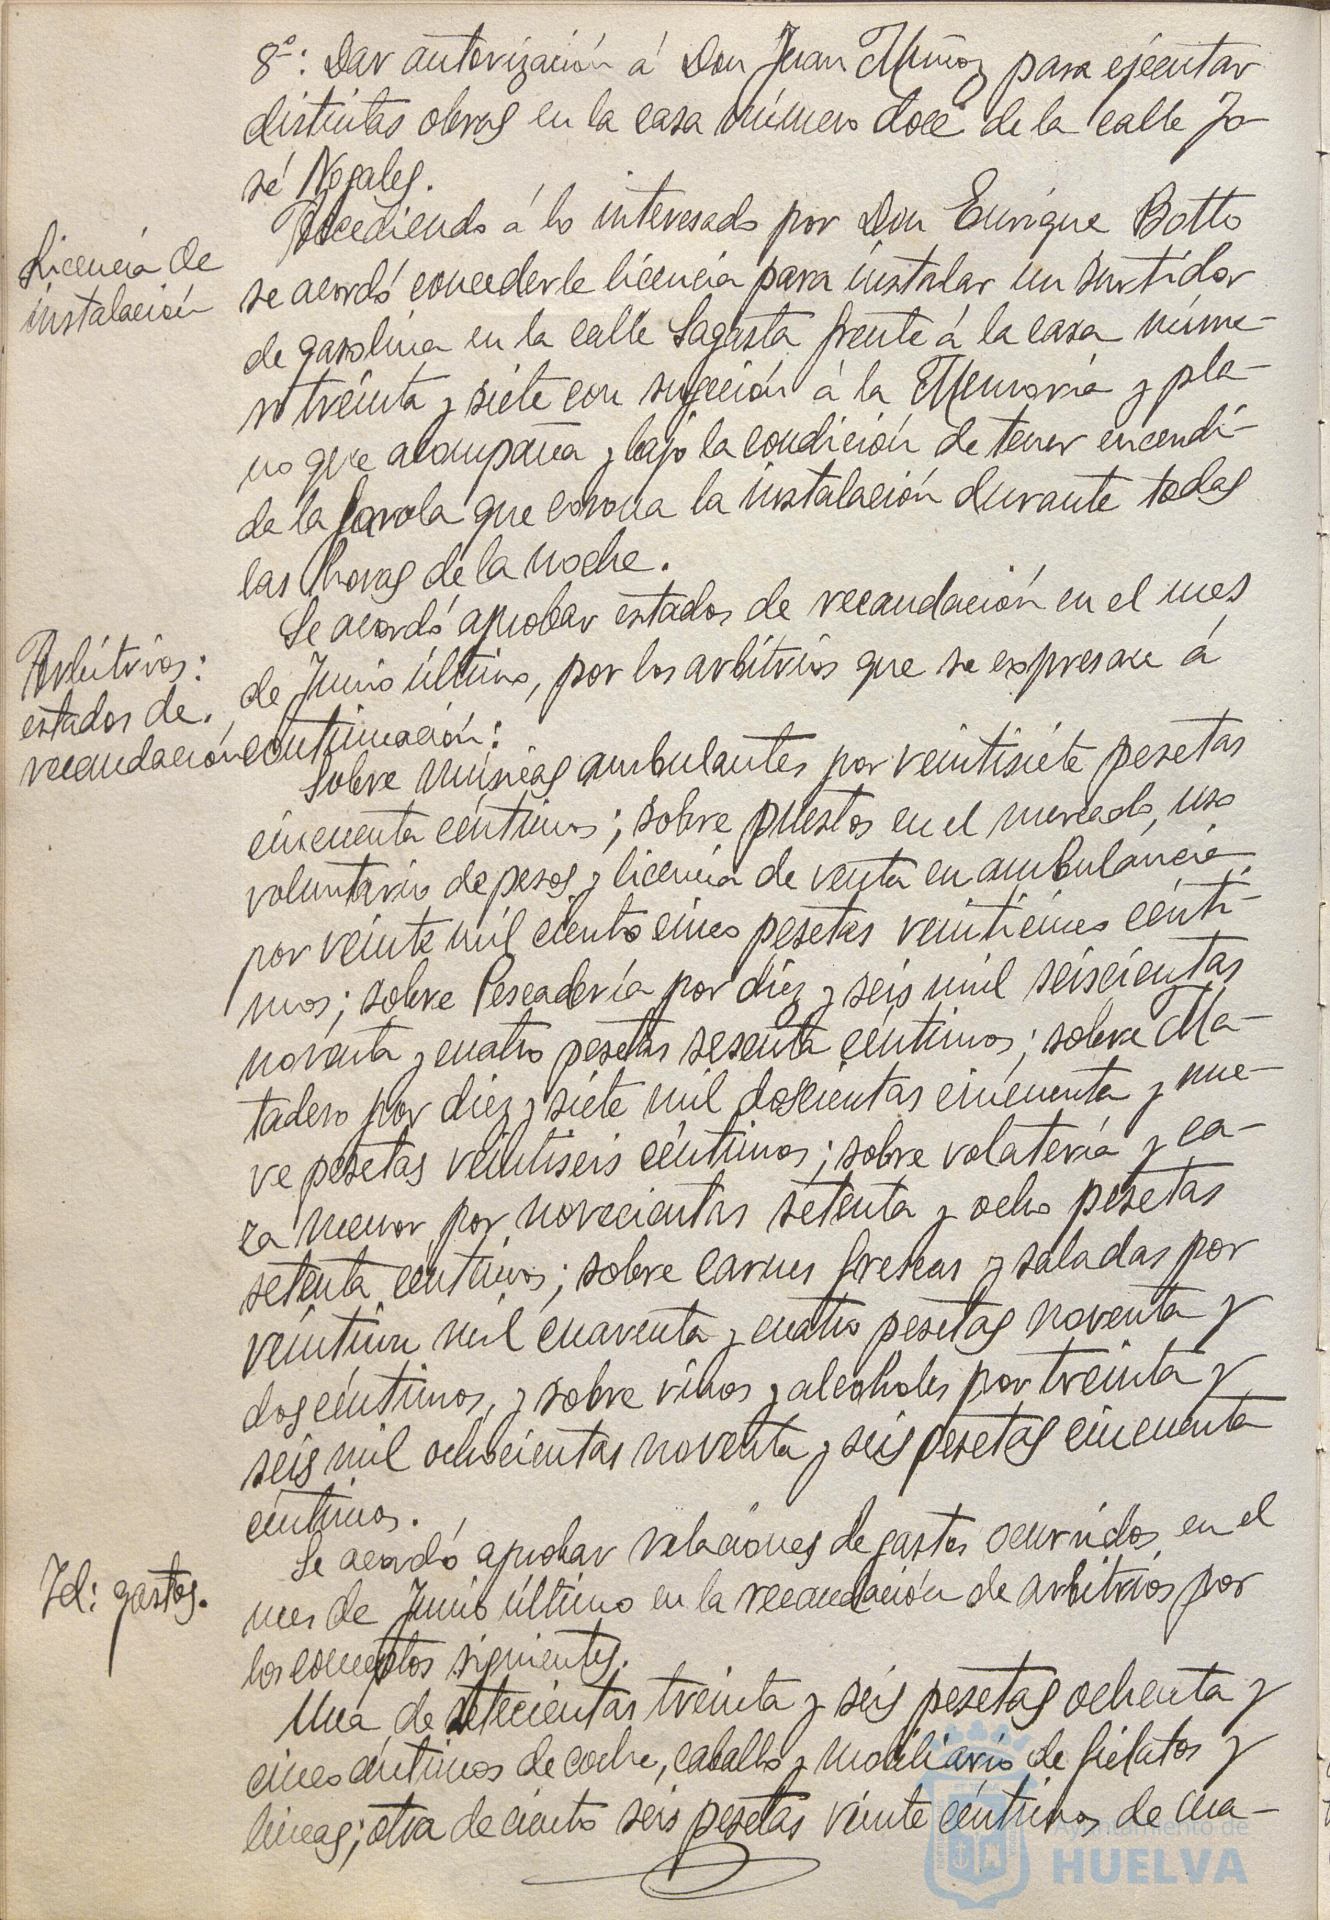 8º: Dar autorización á Don Juan Muñoz para ejecutar
distintas obras en la casa número doce de la calle Jo-
sé Nogales.
Licencia de
instalación
Accediendo á lo interesado por Don Enrique Botto
se acordó concederle licencia para instalar un surtidor
de gasolina en la calle Sagasta frente á la casa núme-
ro treinta y siete con sujeción á la Memoria y pla-
no que acompaña y bajo la condición de tener encendi-
da la farola que corona la instalación durante todas
las horas de la noche.
Arbitrios:
estados de
recaudación
Se acordó aprobar estados de recaudación en el mes
de Junio último, por los arbitrios que se expresan á
continuación:
Sobre músicas ambulantes por veintisiete pesetas
cincuenta céntimos; sobre puestos en el mercado, uso
voluntario de pesos y licencia de venta en ambulancia
por veinte mil ciento cinco pesetas veinticinco cénti-
mos; sobre Pescadería por diez y seis mil seiscientas
noventa y cuatro pesetas sesenta céntimos; sobre Ma-
tadero por diez y siete mil doscientas cincuenta y nue-
ve pesetas veintiseis céntimos; sobre volatería y ca-
za menor por novecientas setenta y ocho pesetas
setenta céntimos; sobre carnes frescas y saladas por
veintiun mil cuarenta y cuatro pesetas noventa y
dos céntimos, y sobre vinos y alcoholes por treinta y
seis mil ochocientas noventa y seis pesetas cincuenta
céntimos.
Id: gastos.
Se acordó aprobar relaciones de gastos ocurridos en el
mes de Junio último en la recaudación de arbitrios por
los conceptos siguientes.
Una de setecientas treinta y seis pesetas ochenta y
cinco céntimos de coche, caballo y mobiliario de fielatos y
lineas; otra de ciento seis pesetas veinte céntimos de ma-
Ayuntamiento de
HUELVA